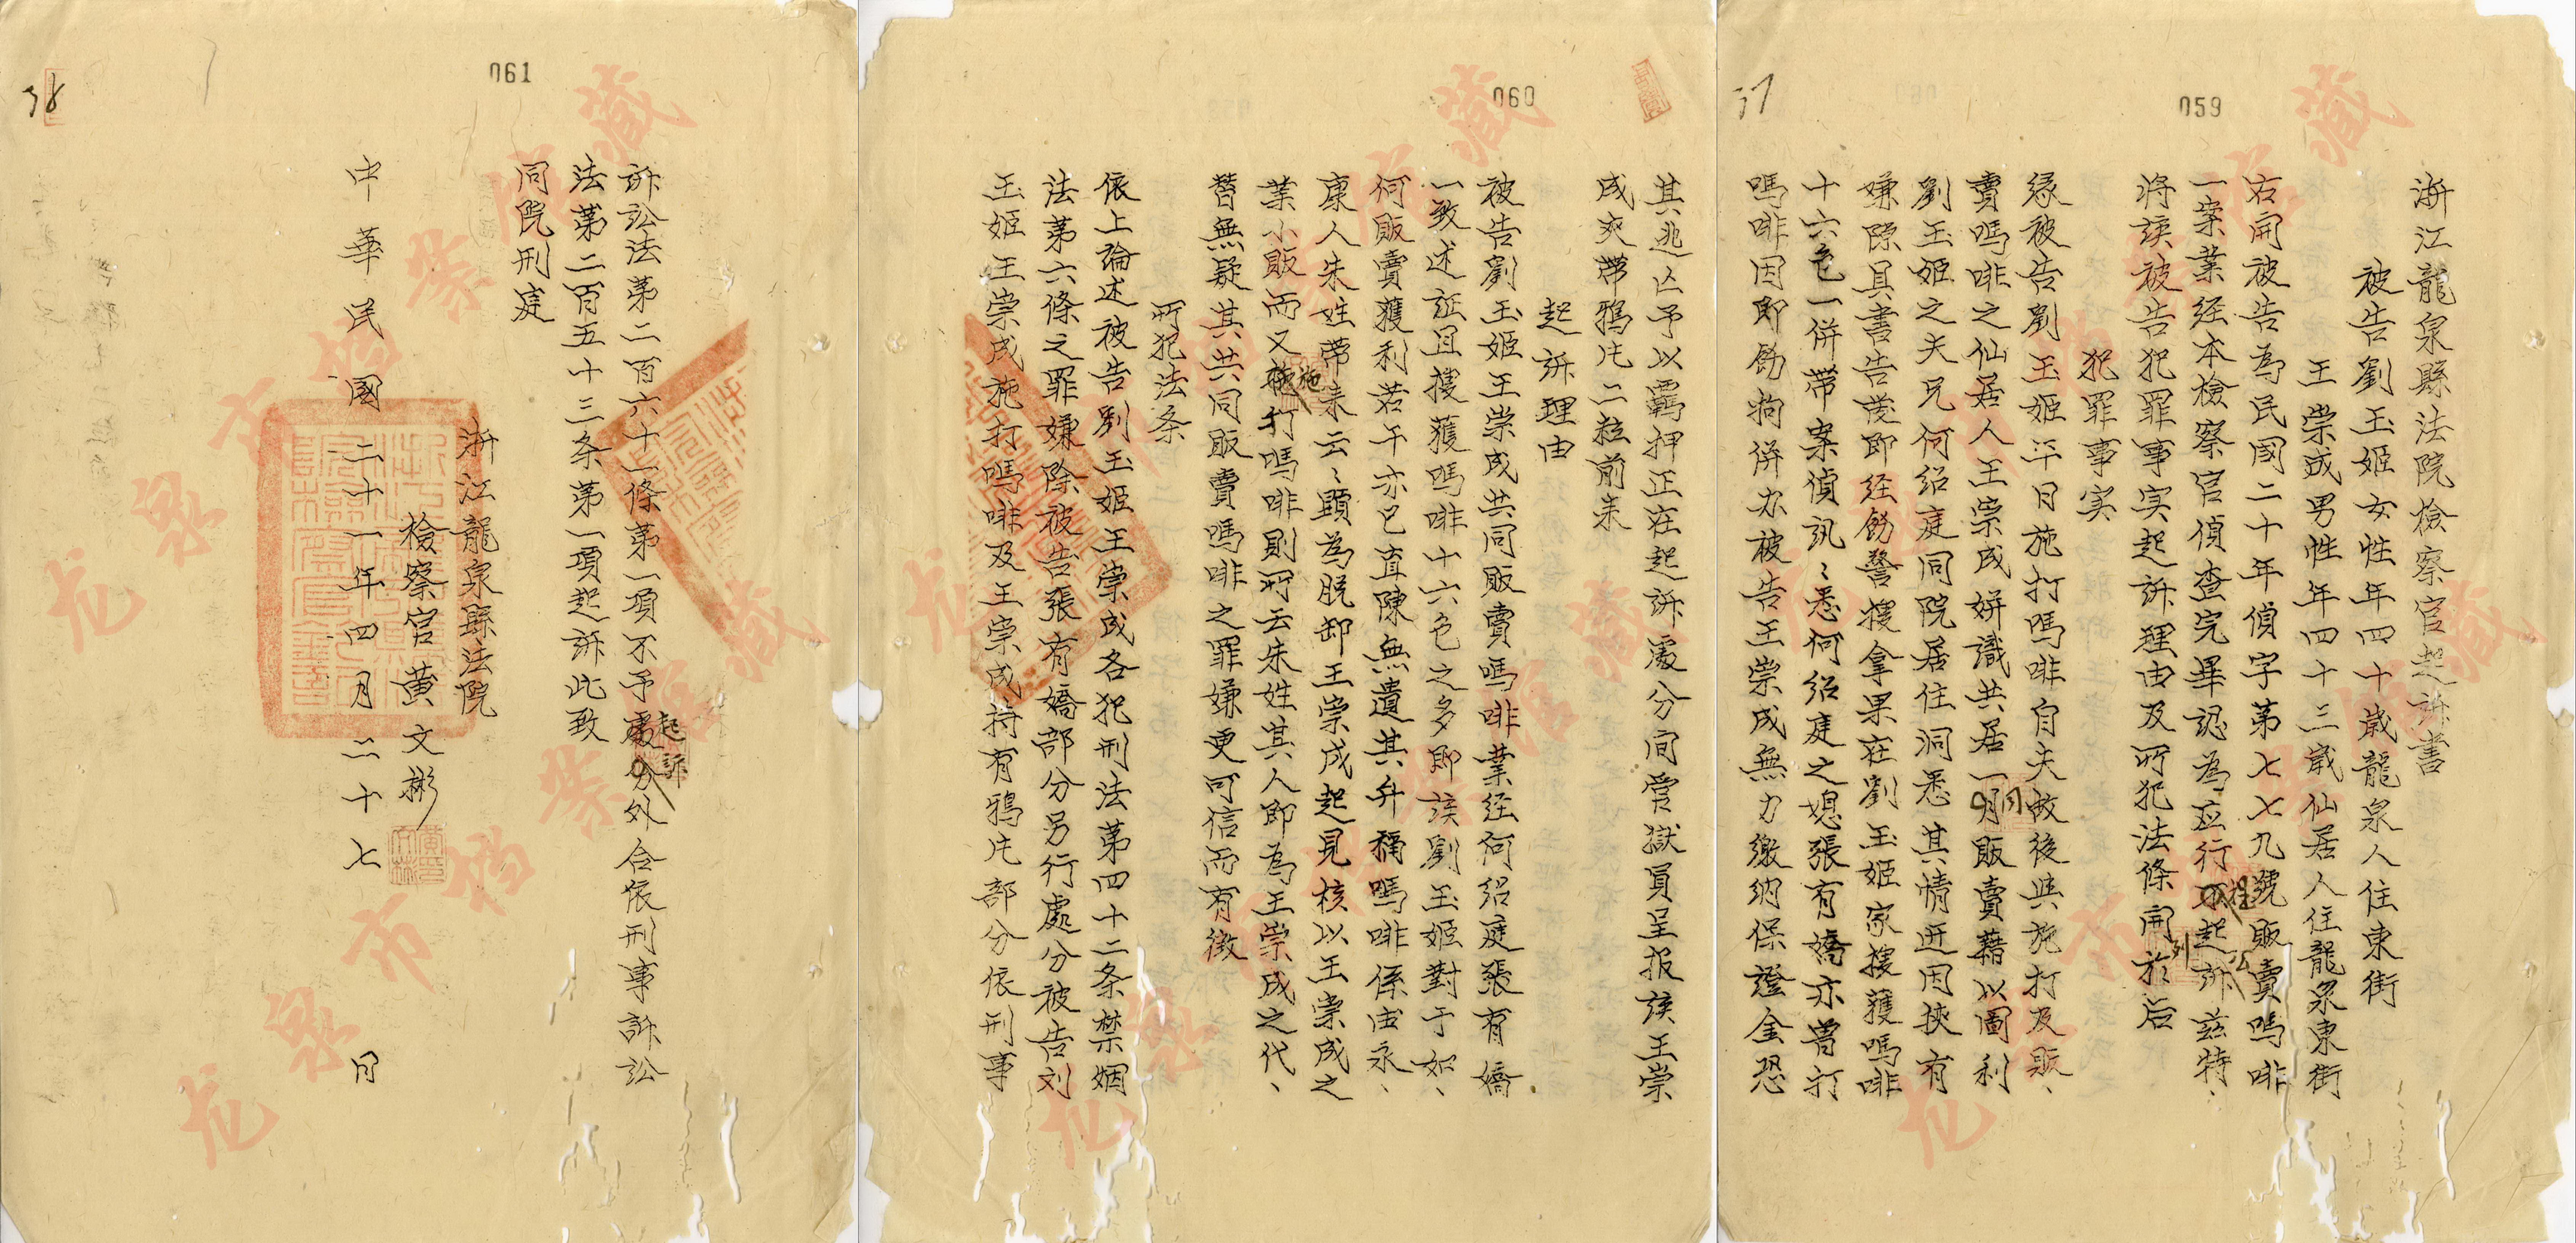 059
37
浙江龍泉縣法院檢察官起訴書
被告劉玉姬女性年四十歲龍泉人住東街
王崇成男性年四十三歲仙居人住龍泉東街
右開被告為民國二十年偵字第七七九號販賣嗎啡
一案業经本檢察官偵查完畢認為应行提起公訴兹特、
將该被告犯罪事实起訴理由及所犯法條開列於后
犯罪事实
缘被告劉玉姬平日施打嗎啡自夫故後與施打及販、
賣嗎啡之仙居人王崇成姘識共居一同販賣藉以圖利
劉玉姬之夫兄何绍庭同院居住洞悉其情迊因挾有
嫌隙具書告發即经飭警搜拿果在劉玉姬家搜獲嗎啡
十六包一併带案偵訊、悉何绍庭之媳張有嬌亦曾打
嗎啡因即飭拘併办被告王崇成無力缴纳保證金恐
060
其逃亡予以羈押正在起訴處分间管獄員呈报该王崇
成夾带鴉片二粒前来
起訴理由
被告劉玉姬王崇成共同販賣嗎啡業经何绍庭張有嬌
一致述証且搜獲嗎啡十六包之多即该劉玉姬對于如、
何販賣獲利若干亦已直陳無遺其弁稱嗎啡係由永、
康人朱姓带来云、顕為脱卸王崇成起見核以王崇成之
業小販而又施打嗎啡則所云朱姓其人即為王崇成之代、
替無疑其共同販賣嗎啡之罪嫌更可信而有徵
所犯法条
依上論述被告劉玉姬王崇成各犯刑法第四十二条禁烟
法第六條之罪嫌除被告張有嬌部分另行處分被告刘
玉姬王崇成施打嗎啡及王崇成持有鴉片部分依刑事
061
38
訴訟法第二百六十一條第一項不予起訴外合依刑事訴訟
法第二百五十三条第一項起訴此致
同院刑庭
浙江龍泉縣法院
檢察官黄文彬
中華民國二十一年四月二十七日
龙泉市档案馆藏
龙泉市档案馆藏
龙泉市档案馆藏
龙泉市档案馆藏
龙泉市档案馆藏
龙泉市档案馆藏